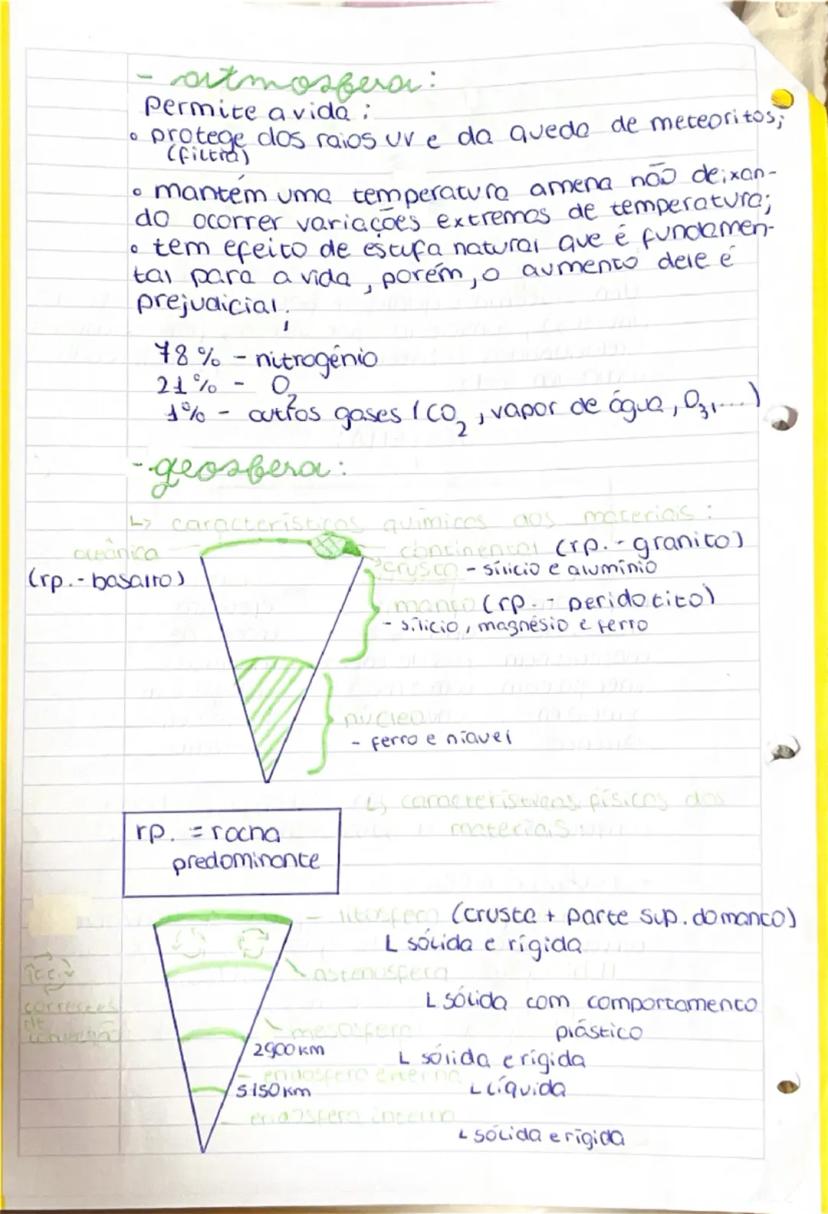 - atmosfera:
permite a vida:
• protege dos raios UV e da queda de meteoritos;
(filtra)
• mantém uma temperatura amena não deixan-
do ocorrer variações extremas de temperatura;
• tem efeito de estufa natural que é fundamen-
tal para a vida, porém, o aumento dele é
prejudicial.
78% - nitrogénio
21% - O2
1% - outros gases (CO2, vapor de água, O3,...)
- geosfera:
↳ características químicas dos materiais:
oceânica
(rp. - basalto)
- continental (rp. - granito)
crusta - silício e alumínio
manto (rp. - peridotito)
- silício, magnésio e ferro
núcleo
- ferro e níquel
↳ características físicas dos
materiais
rp. = rocha
predominante
- litosfera (crusta + parte sup. do manto)
L sólida e rígida
astenosfera
L sólida com comportamento
plástico
correntes
de
convecção
- mesosfera
2900 km
L sólida e rígida
- endosfera externa
5150 km
L líquida
endosfera interna
L sólida e rígida